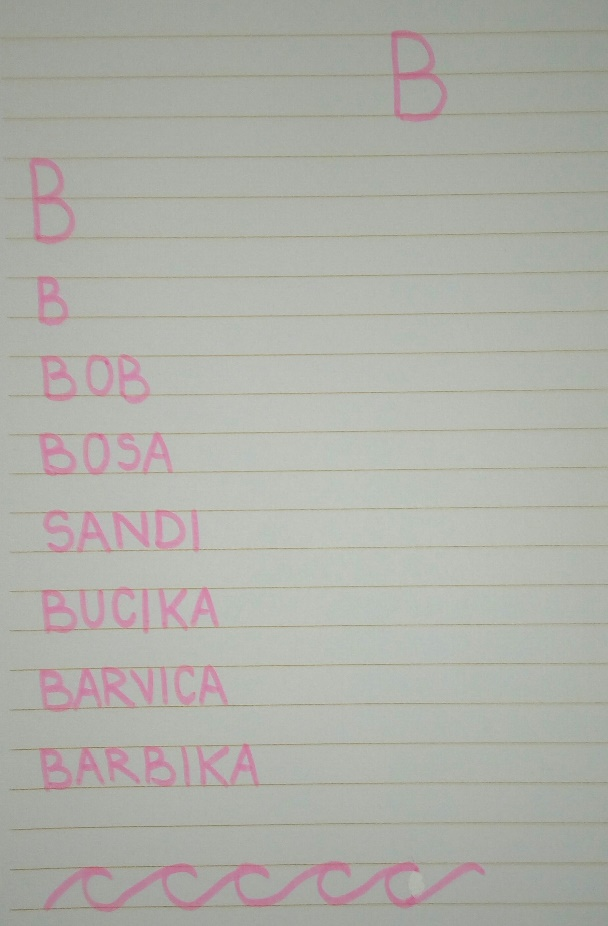 B
B
B
BOB
BOSA
SANDI
BUCIKA
BARVICA
BARBIKA